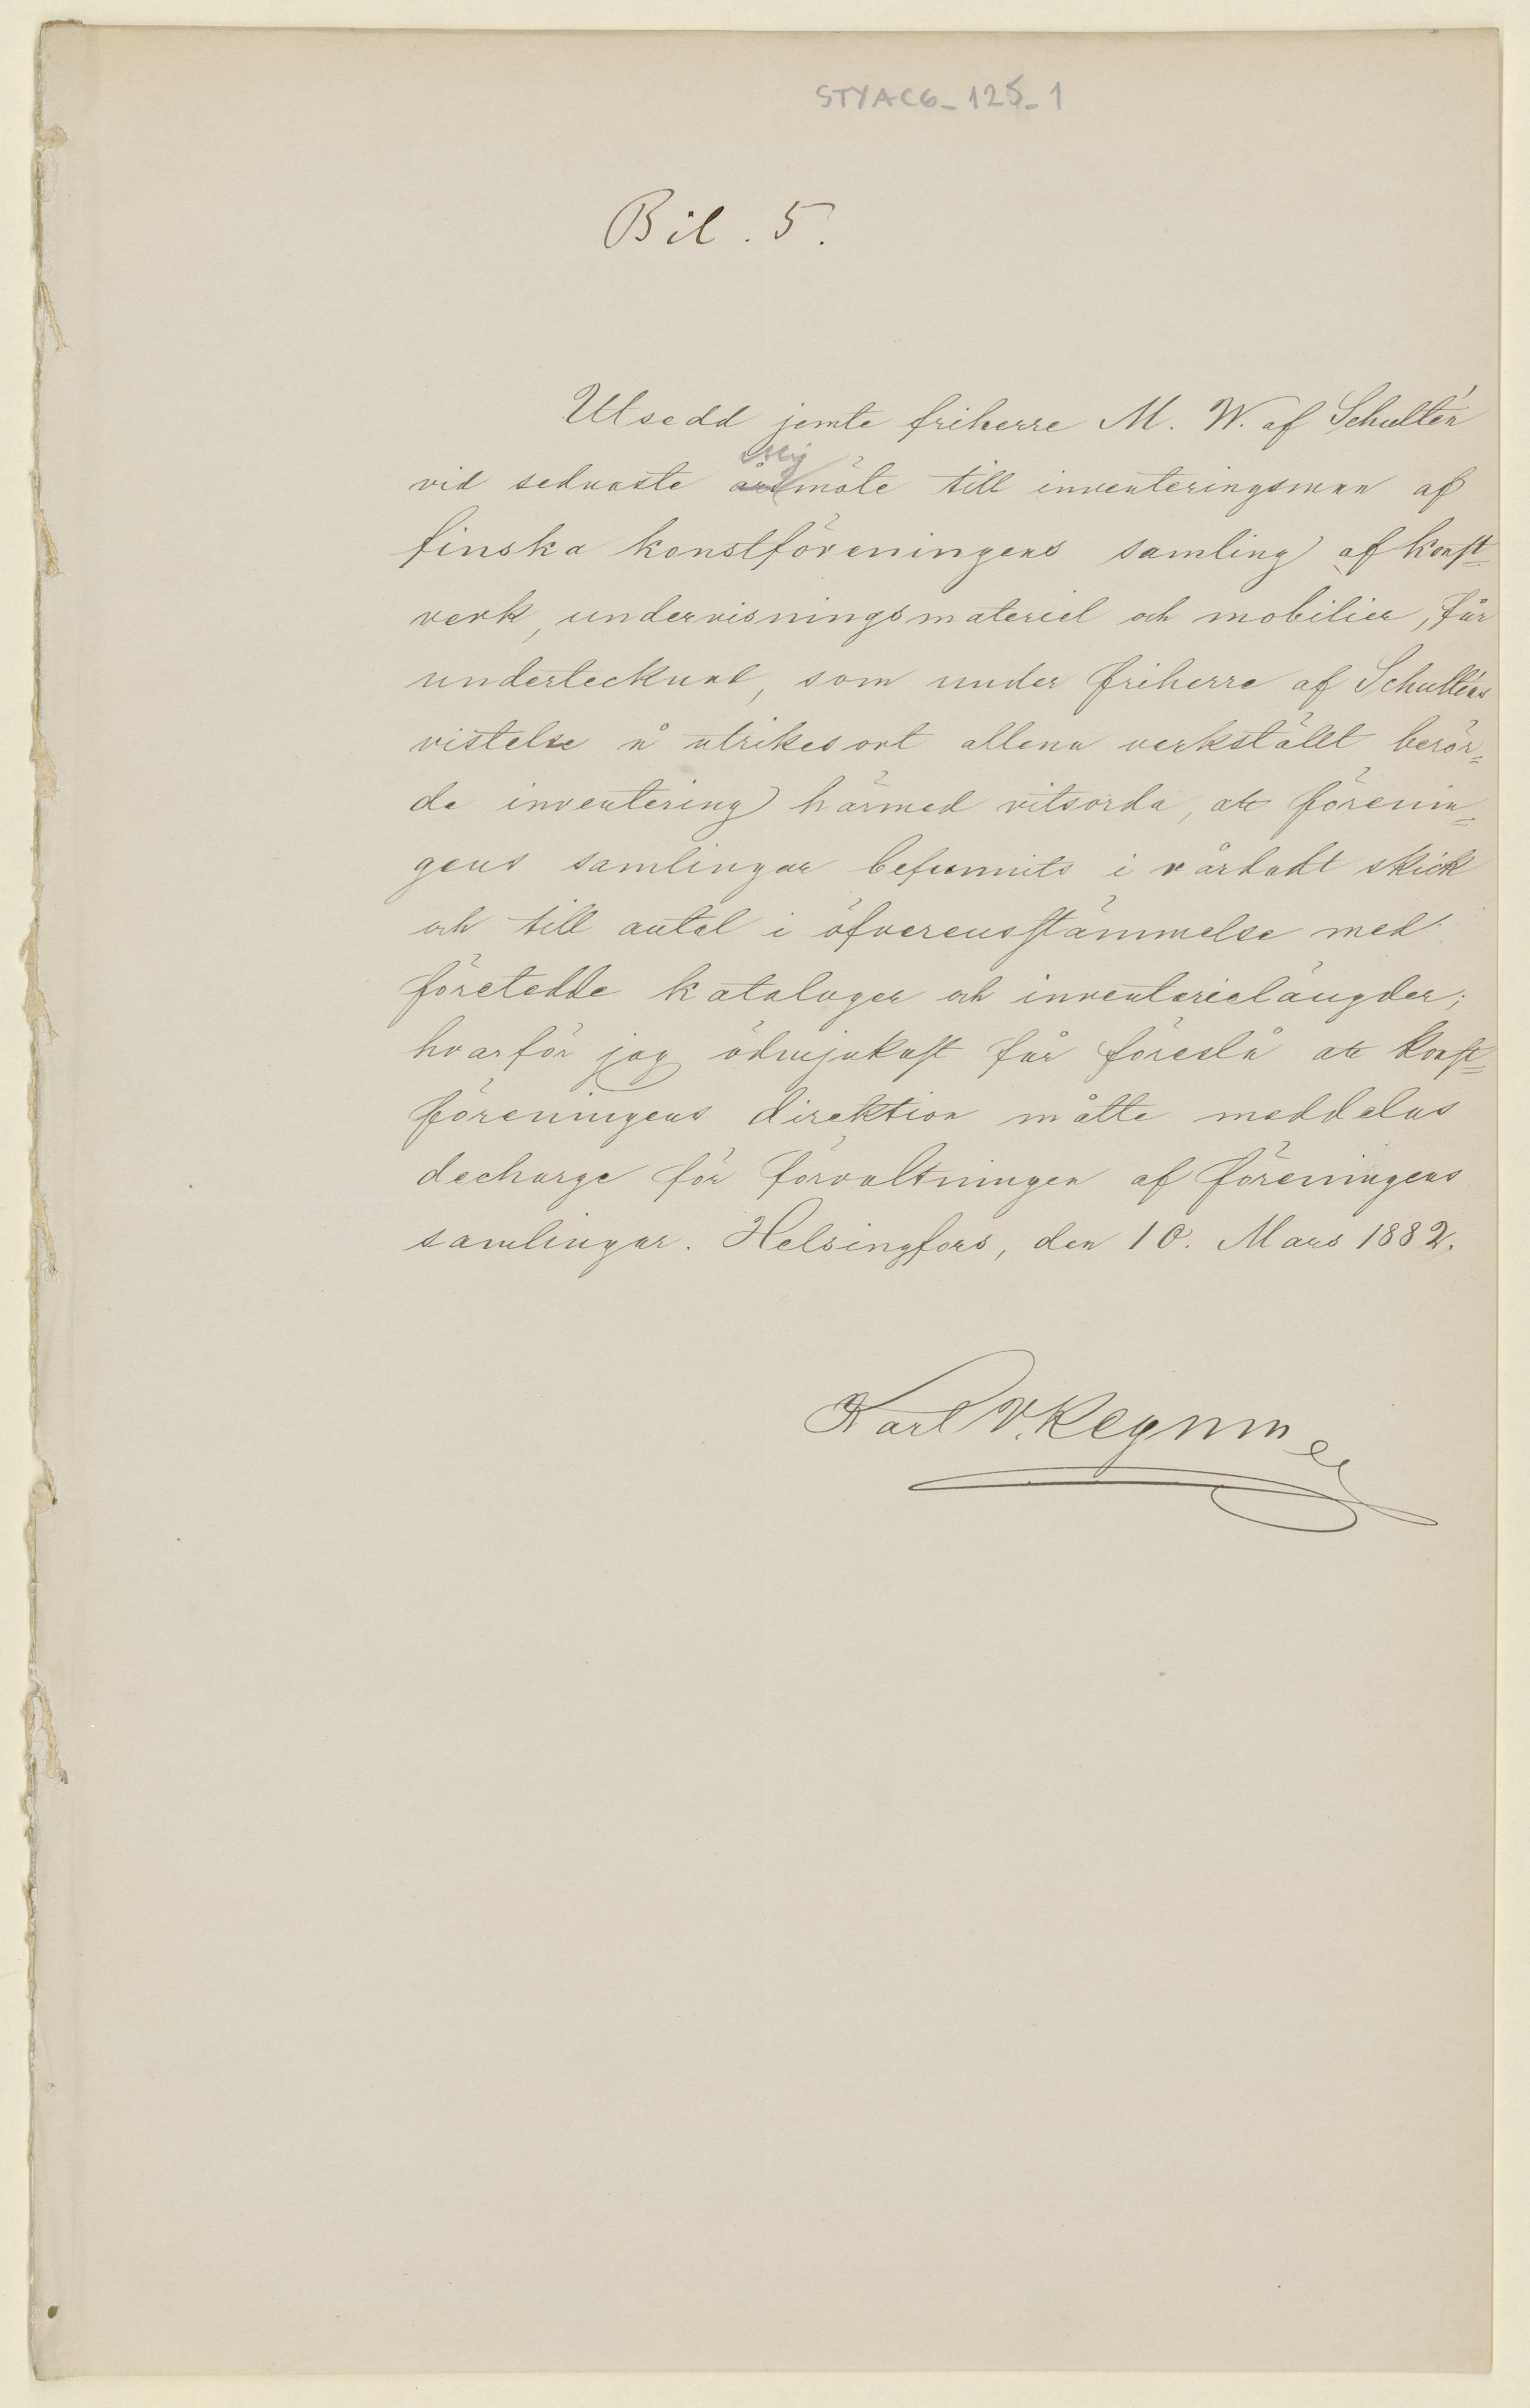 STYAC6_125_1
Bil. 5.
Utsedd jemte friherre M. W. af Schultén
vid sednaste årsmöte till inventeringsman af
finska konstföreningens samling af konst=
verk, undervisningsmateriel och mobilier, får
undertecknad, som under friherre af Schulténs
vistelse å utrikes ort allena verkstält berör=
da inventering härmed vitsorda, att förenin=
gens samlingar befunnits i vårdadt skick
och till antal i öfverensstämmelse med
företedde kataloger och inventarielängder;
hvarför jag ödmjukast får föreslå att konst=
föreningens direktion måtte meddelas
decharge för förvaltningen af föreningens
samlingar. Helsingfors, den 10. Mars 1882.
Karl V.